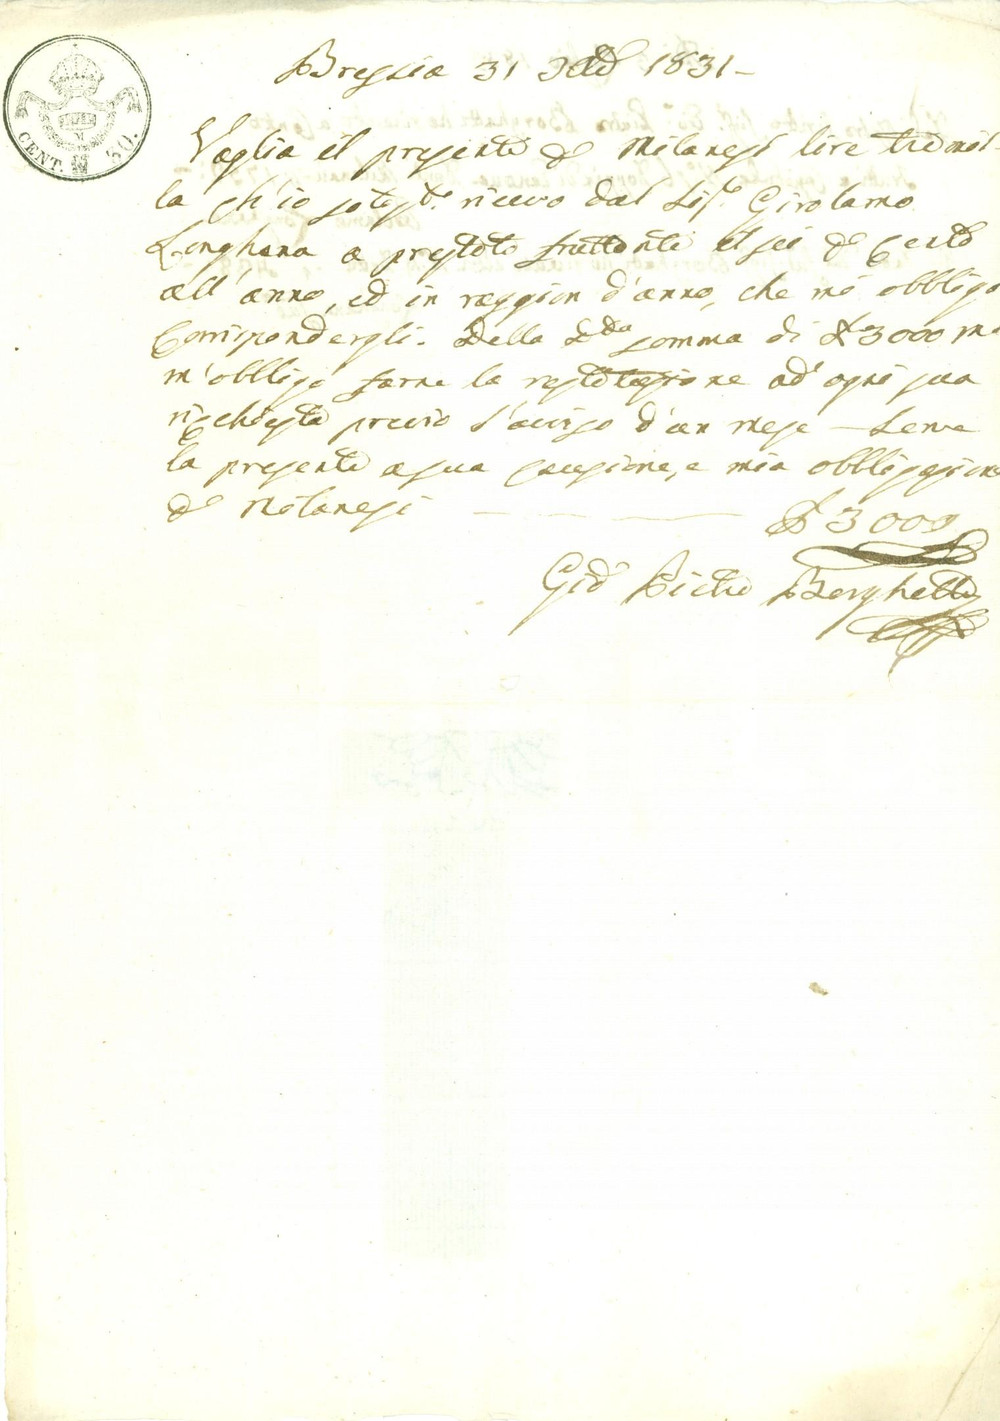 CENT. 30.
M
Brescia 31 1831 -
Vaglia il presente di Milanesi lire tremil-
la ch'io ricevo dal Sig.r Girolamo
Longhena a prestito fruttante il sei per cento
all'anno, ed in raggion d'anno, che mi obbligo
Corrispondergli. Della d.da somma di £ 3000 m
m'obbligo farne la restituzione ad ogni sua
richiesta previo l'aviso d'un mese — Serve
la presente a sua cauzione, e mia obbligazione
di Milanesi — £ 3000
Gio Pietro Borghetti